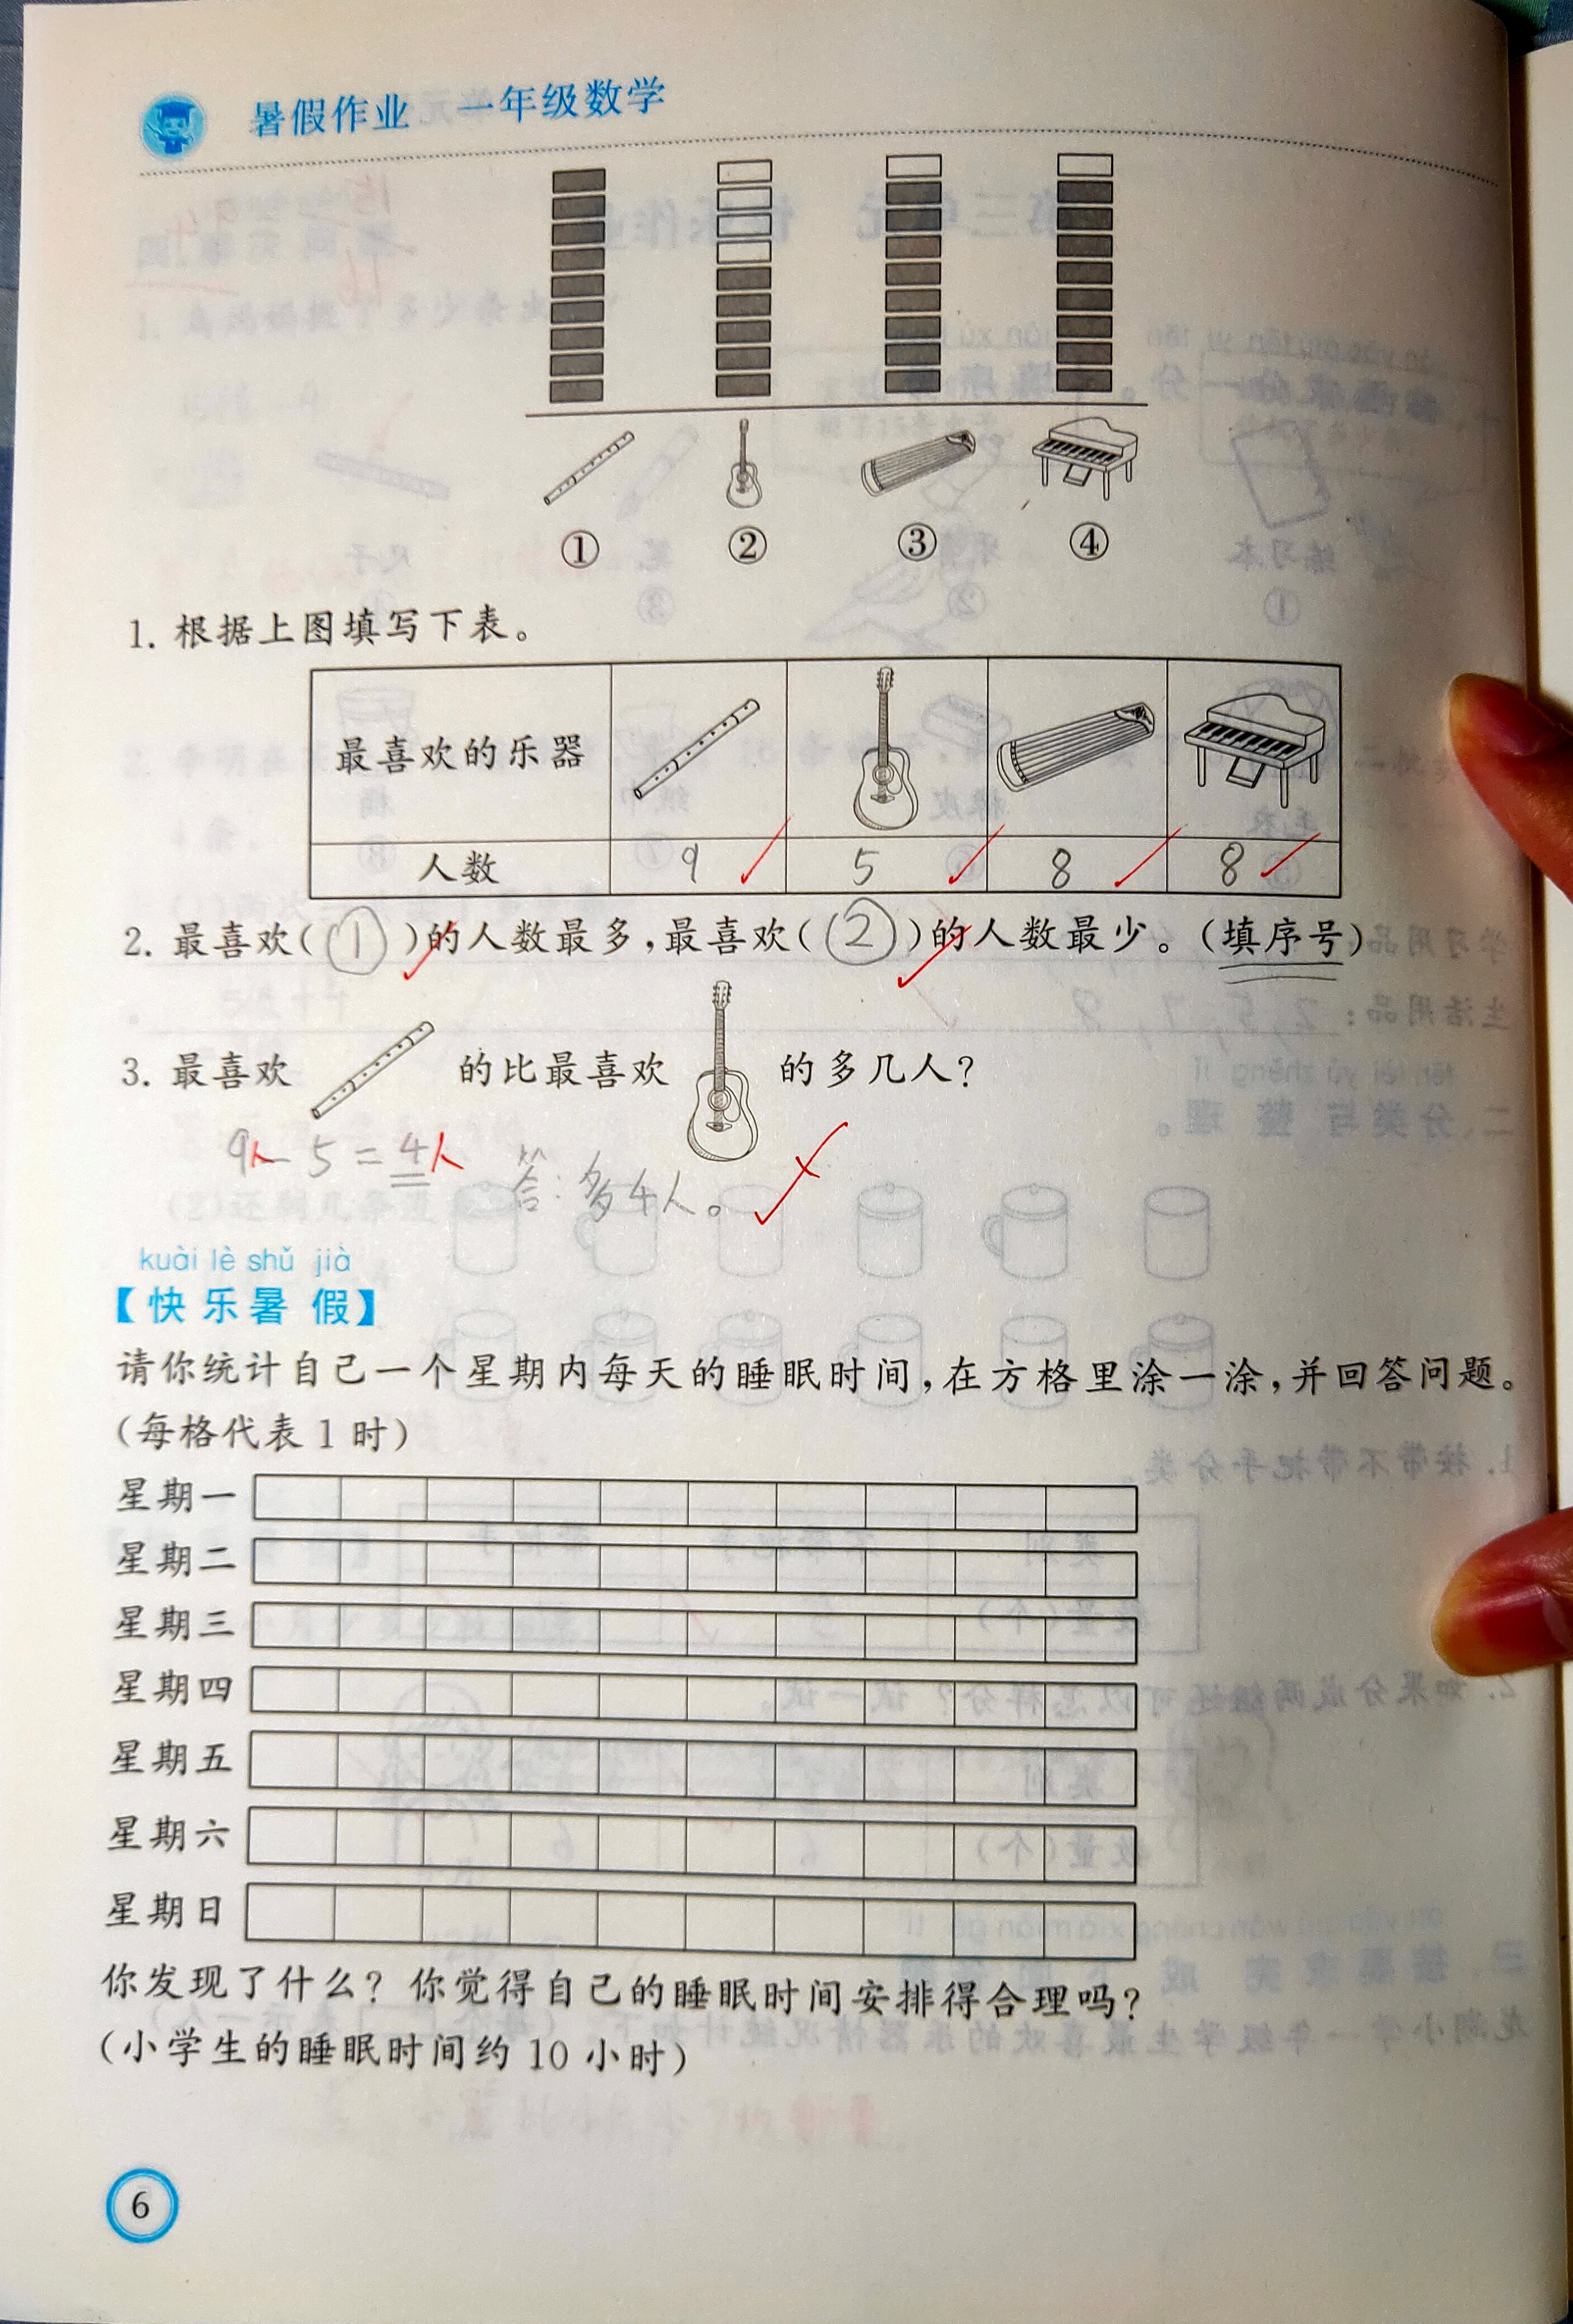 暑假作业 一年级数学
① ② ③ ④
1. 根据上图填写下表。
最喜欢的乐器
人数 9 5 8 8
2. 最喜欢(①)的人数最多,最喜欢(②)的人数最少。(填序号)
3. 最喜欢 的比最喜欢 的多几人?
9人-5=4人 答:多4人。
kuài lè shǔ jià
【快乐暑假】
请你统计自己一个星期内每天的睡眠时间,在方格里涂一涂,并回答问题。
(每格代表1时)
星期一
星期二
星期三
星期四
星期五
星期六
星期日
你发现了什么?你觉得自己的睡眠时间安排得合理吗?
(小学生的睡眠时间约10小时)
6